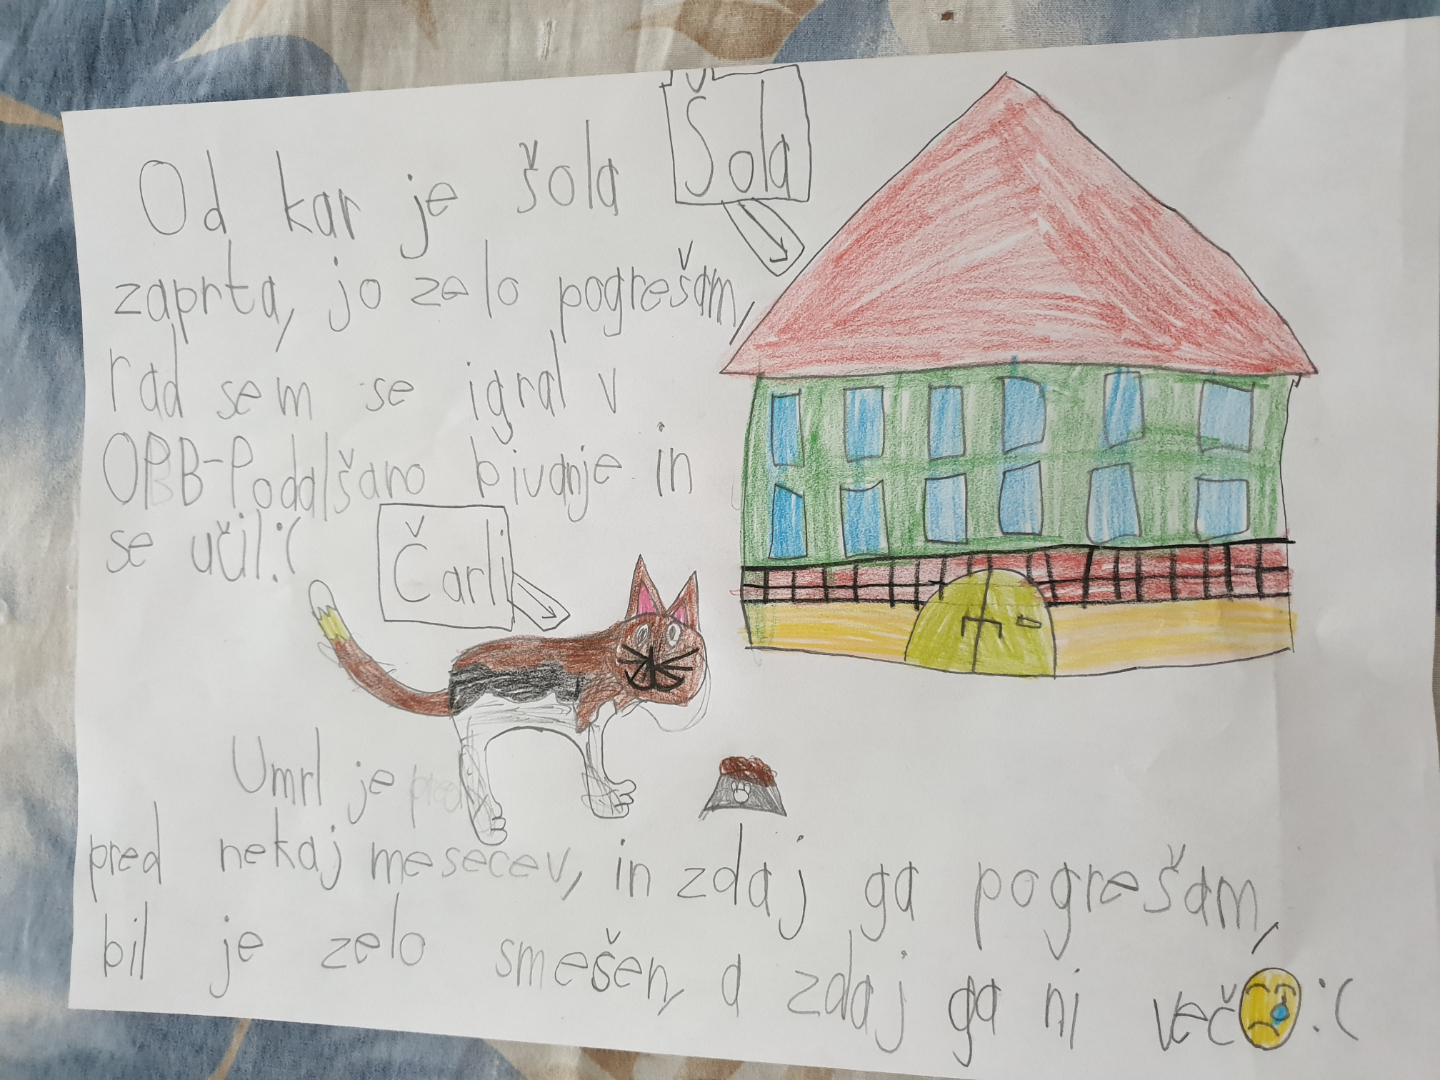 Šola
Od kar je šola
zaprta, jo zelo pogrešam,
rad sem se igral v
OPB-Podalšano bivanje in
se učil:(
Čarli
Umrl je
pred nekaj mesecev, in zdaj ga pogrešam,
bil je zelo smešen, a zdaj ga ni več :(